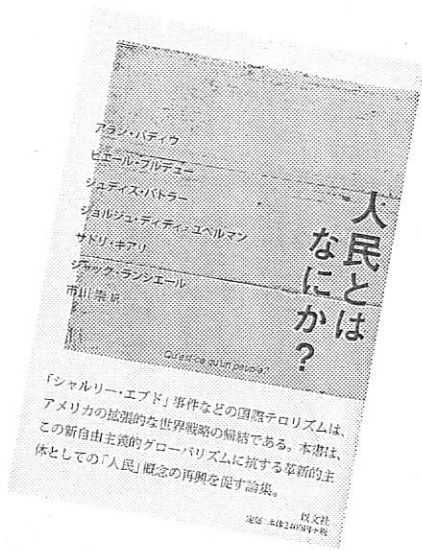 人民とは
なにか?
アラン・バディウ
ピエール・ブルデュー
ジュディス・バトラー
ジョルジュ・ディディ=ユベルマン
サドリ・キアリ
ジャック・ランシエール
市川 崇 訳
Qu'est-ce qu'un peuple?
「シャルリー・エブド」事件などの国際テロリズムは、
アメリカの拡張的な世界戦略の帰結である。本書は、
この新自由主義的グローバリズムに抗する革新的主
体としての「人民」概念の再興を促す論集。
以文社
定価:本体2400円+税